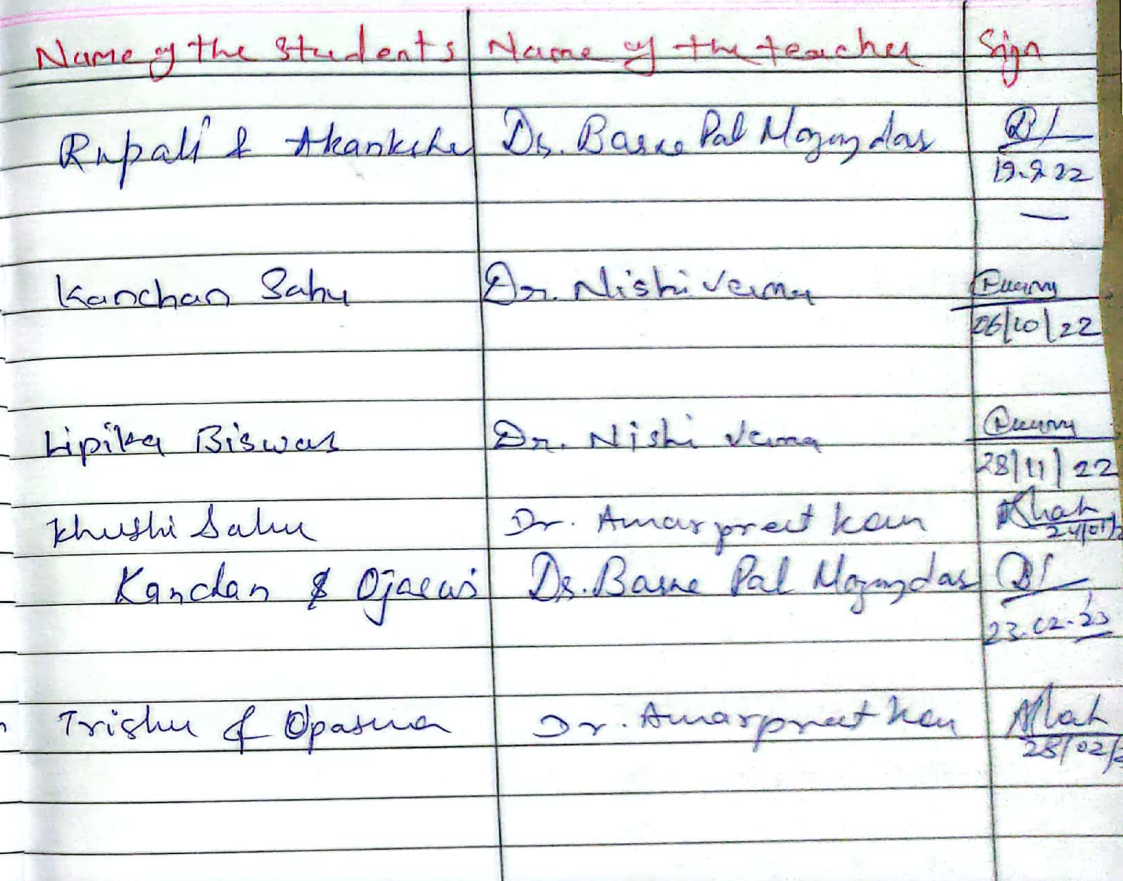 Name of the Students Name of the teacher Sign
Rupali & Akanksha Dr. Basne Pal Mozumdar
19.9.22
Kanchan Sahu Dr. Nishi Verma
06/10/22
Lipika Biswas Dr. Nishi Verma
28/11/22
Khushi Sahu Dr. Amarpreet Kaur
24/01/
Kanchan & Dr. Basne Pal Mozumdar
23.02.23
Trishu & Opasna Dr. Amarpreet Kaur
28/02/